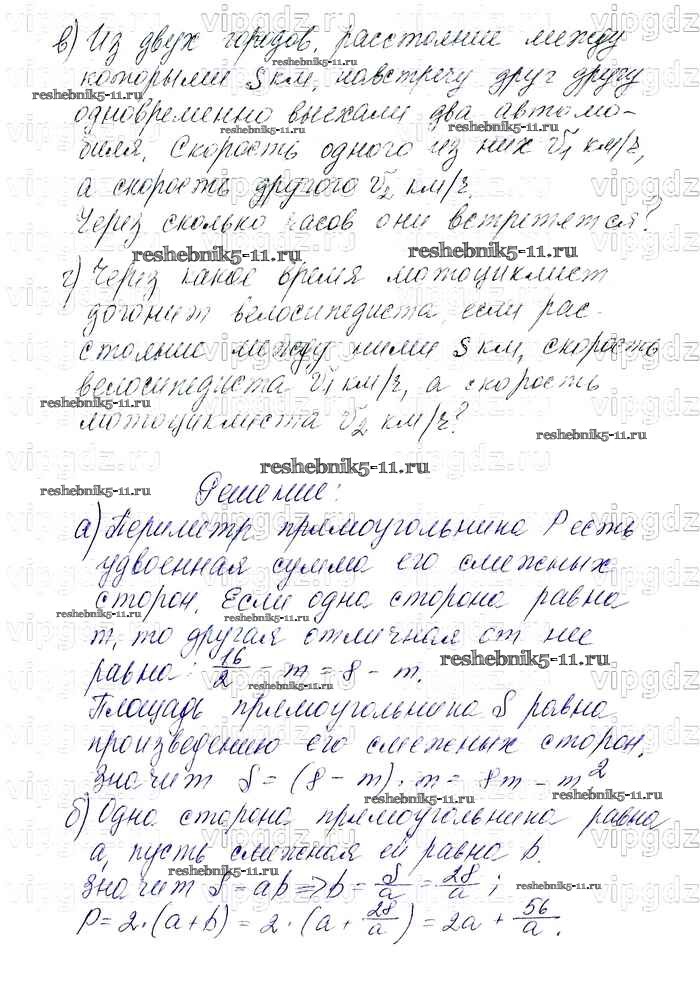 в) Из двух городов, расстояние между
которыми S км, навстречу друг другу
одновременно выехали два автомо-
биля. Скорость одного из них V₁ км/ч,
а скорость другого V₂ км/ч.
Через сколько часов они встретятся?
г) Через какое время мотоциклист
догонит велосипедиста, если рас-
стояние между ними S км, скорость
велосипедиста V₁ км/ч, а скорость
мотоциклиста V₂ км/ч?
reshebnik5-11.ru
Решение:
а) Периметр прямоугольника P есть
удвоенная сумма его смежных
сторон. Если одна сторона равна
m, то другая отличная от нее
равна: 16/2 - m = 8 - m.
Площадь прямоугольника S равна
произведению его смежных сторон.
Значит S = (8 - m) · m = 8m - m²
б) Одна сторона прямоугольника равна
a, пусть смежная ей равна b.
Значит S = ab => b = S/a = 28/a ;
P = 2·(a+b) = 2·(a + 28/a) = 2a + 56/a.
vipgdz.ru